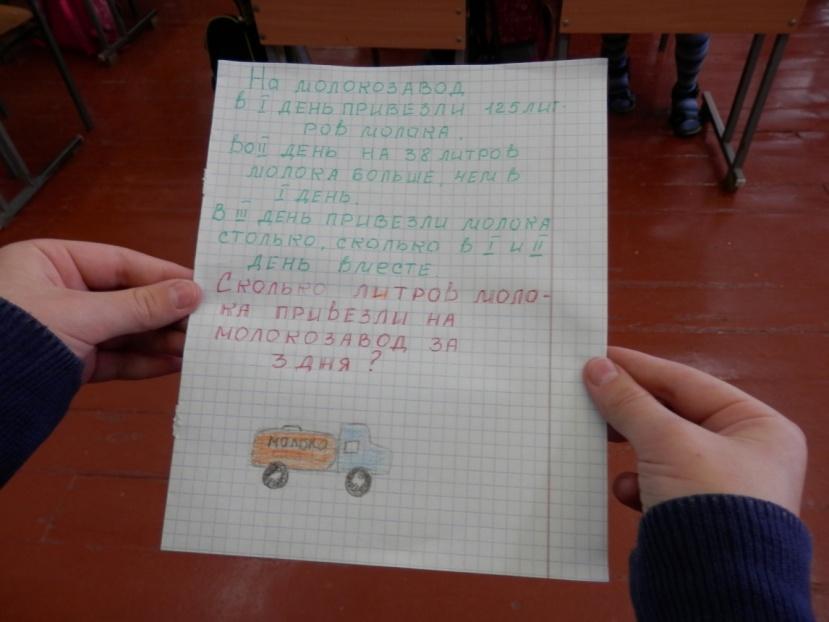 На молокозавод
в I день привезли 125 лит-
ров молока.
Во II день на 38 литров
молока больше, чем в
I день.
В III день привезли молока
столько, сколько в I и II
день вместе.
Сколько литров моло-
ка привезли на
молокозавод за
3 дня?
МОЛОКО